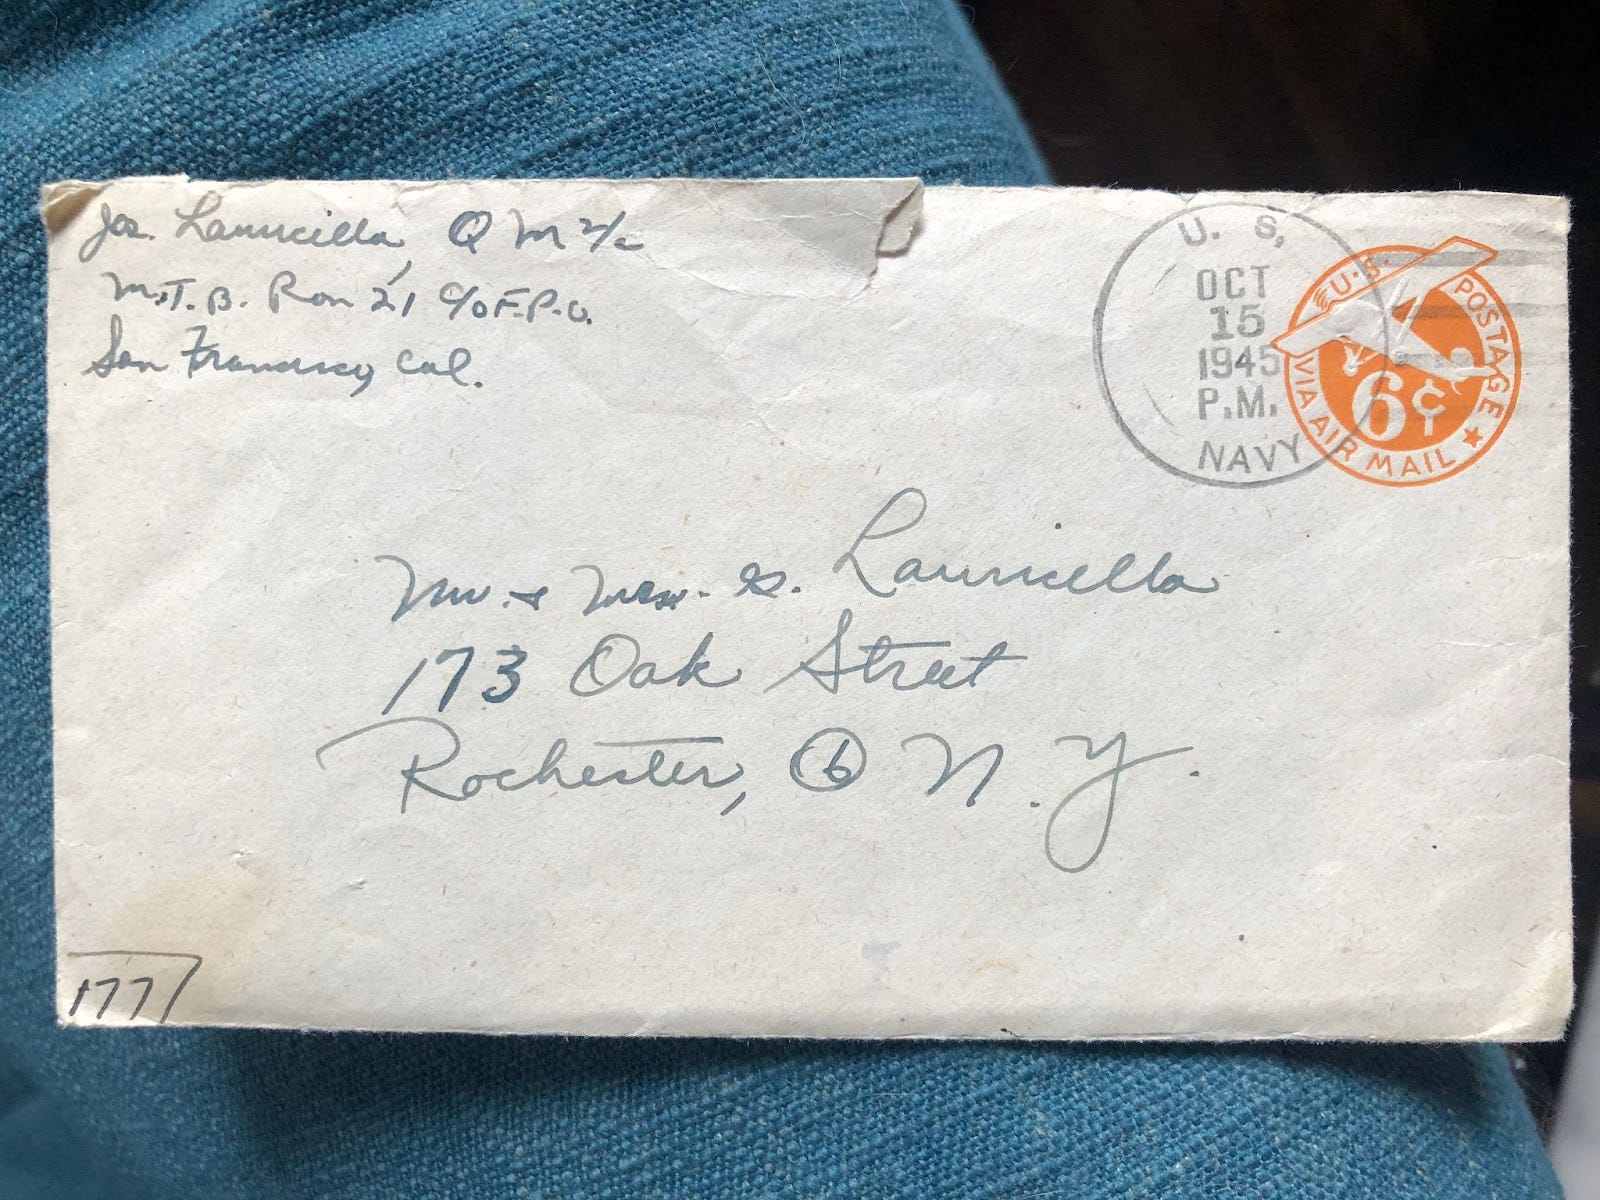 Jos. Lauricella, Q M 2/c
M.T.B. Ron 21 c/o F.P.O.
San Francisco, Cal.
U. S.
OCT
15
1945
P.M.
NAVY
U.S. POSTAGE
6¢
VIA AIR MAIL
Mr. & Mrs. S. Lauricella
173 Oak Street
Rochester, 6 N. Y.
177